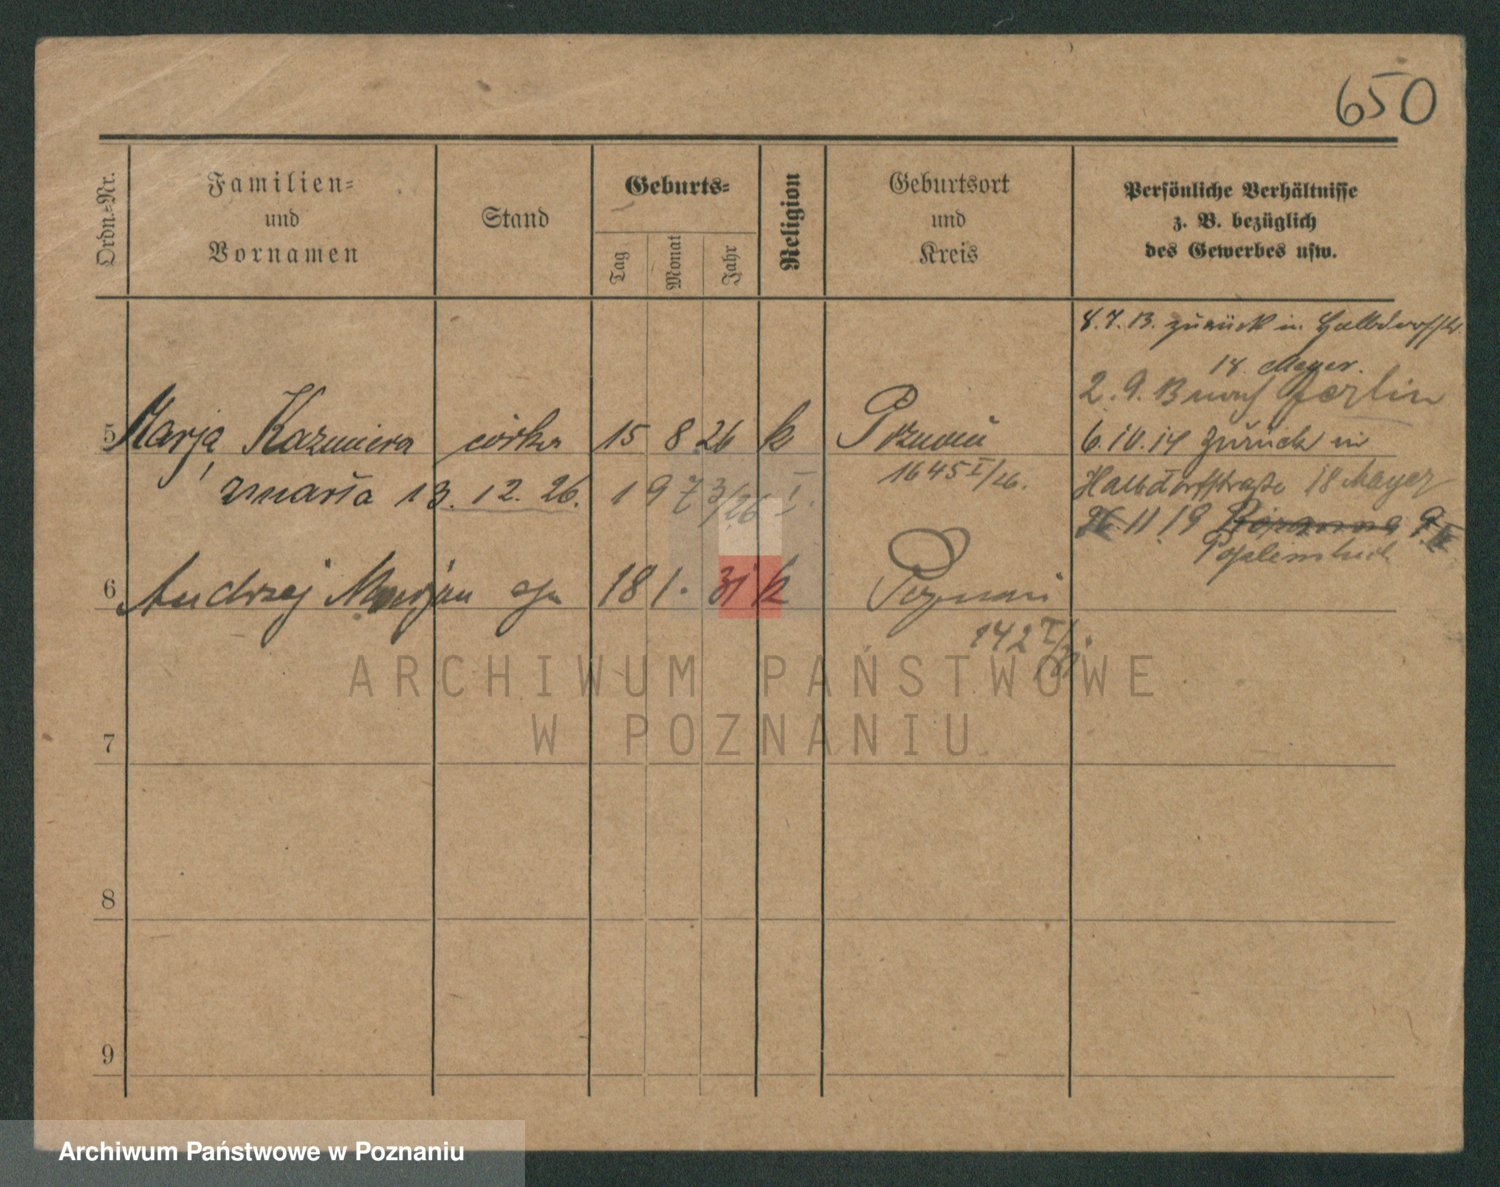 650
Ordn.-Nr.
Familien-
und
Vornamen
Stand
Geburts-
Tag
Monat
Jahr
Religion
Geburtsort
und
Kreis
Persönliche Verhältnisse
z. B. bezüglich
des Gewerbes usw.
8.7.13. zurück in Halbdorfstr.
18. Meyer.
2.9.13 nach Berlin
5 Marja Kazimiera córka 15 8 26 k Poznań
6.10.14 zurück in
1645 I/26.
Halbdorfstraße 18 Meyer
zmarła 13.12.26. 1973/26 I.
26.11.19
6 Andrzej Marjan syn 18 1. 31 k Poznań
142 I/31.
7
8
9
ARCHIWUM PAŃSTWOWE
W POZNANIU
Archiwum Państwowe w Poznaniu